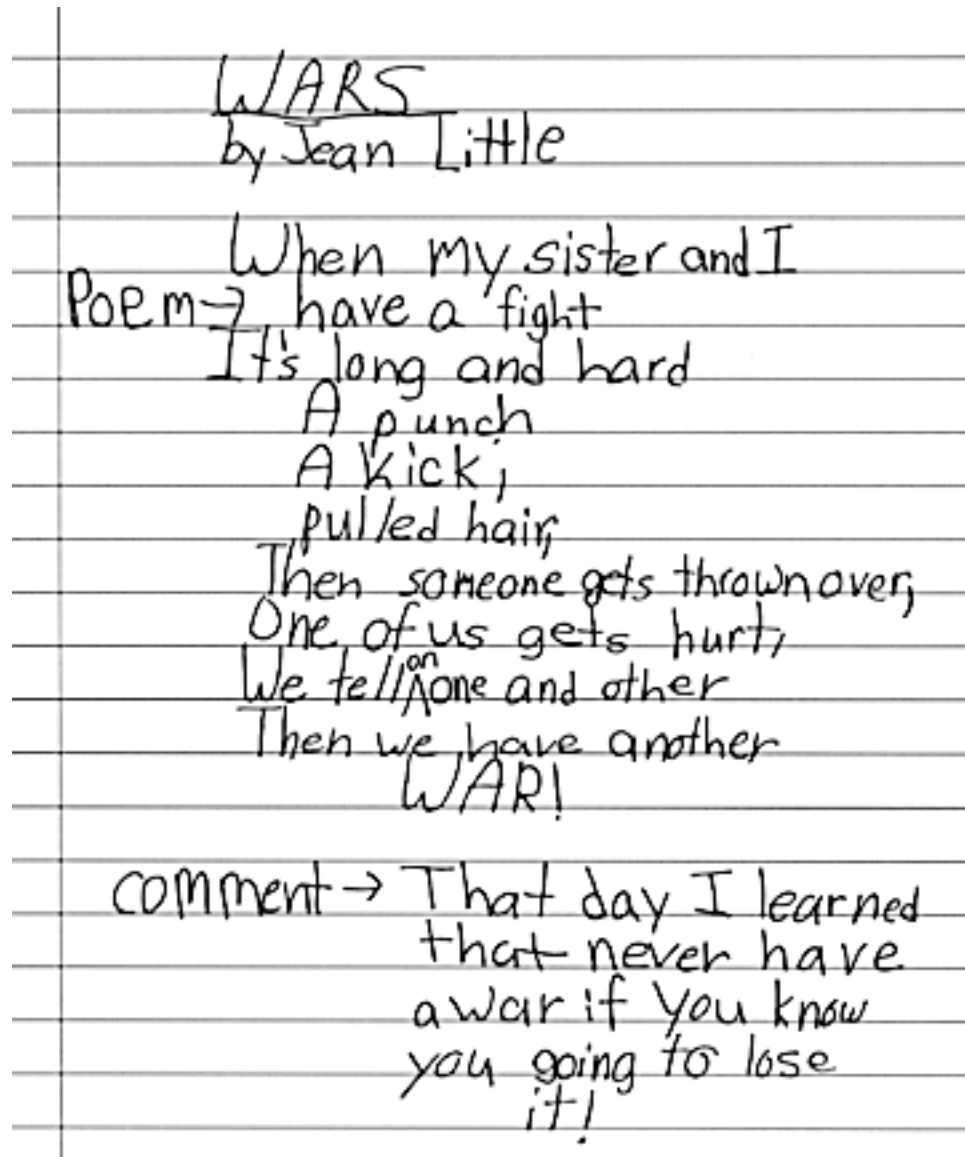 WARS
by Jean Little
When my sister and I
Poem→ have a fight
It's long and hard
A punch
A kick,
pulled hair,
Then someone gets thrown over,
One of us gets hurt,
We tell an one and other
Then we have another
WAR!
comment → That day I learned
that never have
a war if you know
you going to lose
it!